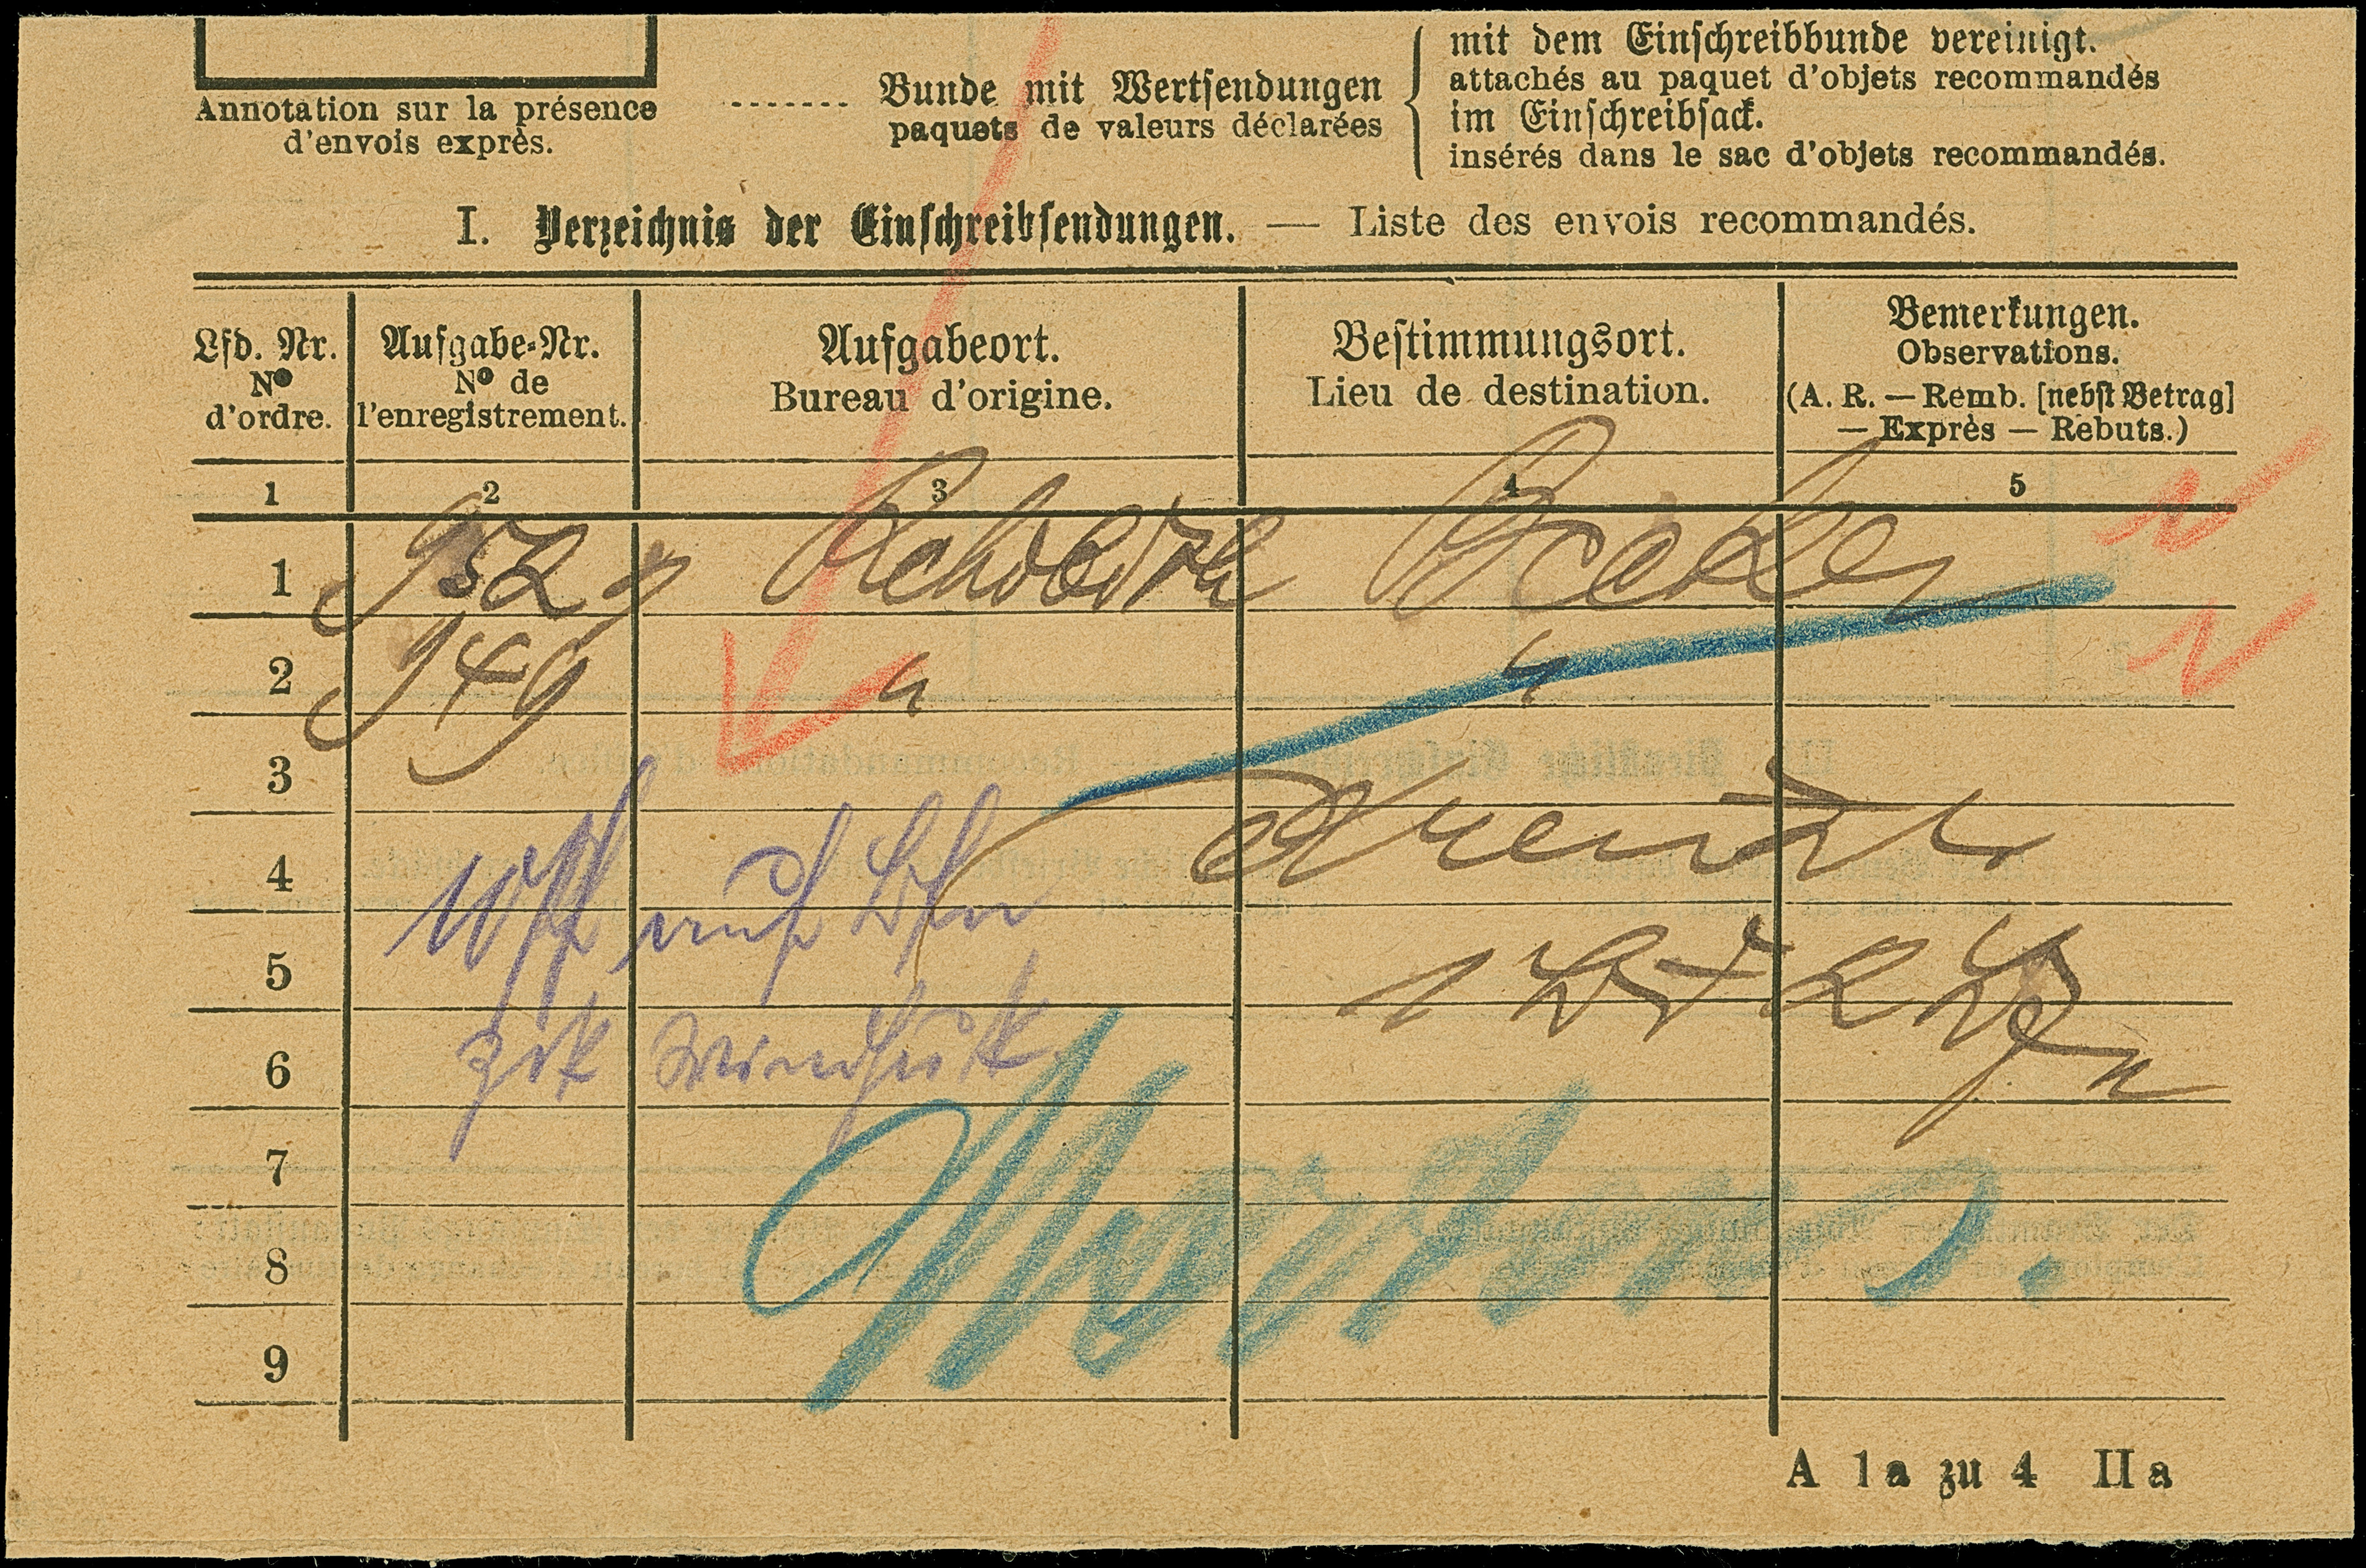 mit dem Einschreibbunde vereinigt.
attachés au paquet d'objets recommandés
....... Bunde mit Wertsendungen
paquets de valeurs déclarées
im Einschreibsack.
insérés dans le sac d'objets recommandés.
Annotation sur la présence
d'envois exprès.
I. Verzeichnis der Einschreibsendungen. — Liste des envois recommandés.
Lfd. Nr.
Nº
d'ordre.
Aufgabe-Nr.
Nº de
l'enregistrement.
Aufgabeort.
Bureau d'origine.
Bestimmungsort.
Lieu de destination.
Bemerkungen.
Observations.
(A. R. — Remb. [nebst Betrag]
— Exprès — Rebuts.)
1 2 3 4 5
1 952 Rehoboth
2 949 " "
3
4
5
6 Windhuk
7
8
9
A 1a zu 4 IIa